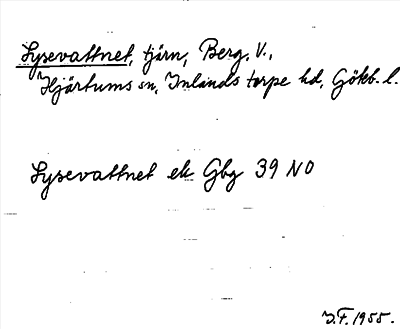 Lysevattnet, tjärn, Berg. V.,
Hjärtums sn, Inlands torpe hd, Gökb. l.
Lysevattnet ek Gbg 39 NO
J.F. 1955.